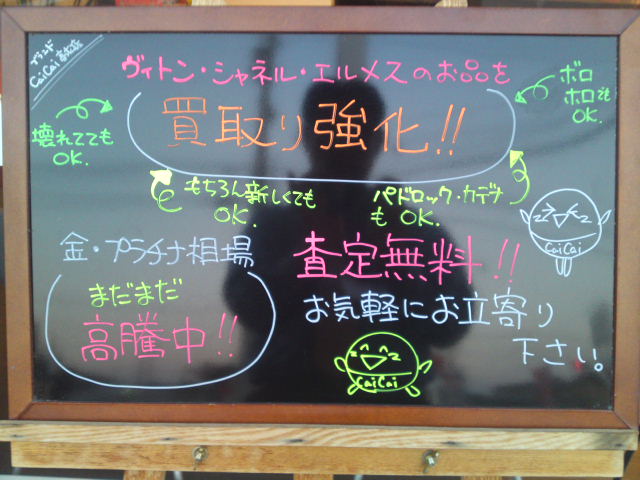 ブランド
CaiCai
ヴィトン・シャネル・エルメスのお品を
買取り強化!!
壊れてても
OK.
ボロ
ボロでも
OK.
もちろん新しくても
OK.
パドロック・カデナ
も OK.
金・プラチナ相場
まだまだ
高騰中!!
査定無料!!
お気軽にお立寄り
下さい。
CaiCai
CaiCai